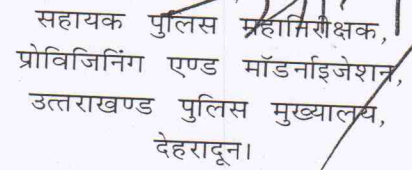 सहायक पुलिस महानिरीक्षक,
प्रोविजिनिंग एण्ड मॉडर्नाइजेशन,
उत्तराखण्ड पुलिस मुख्यालय,
देहरादून।